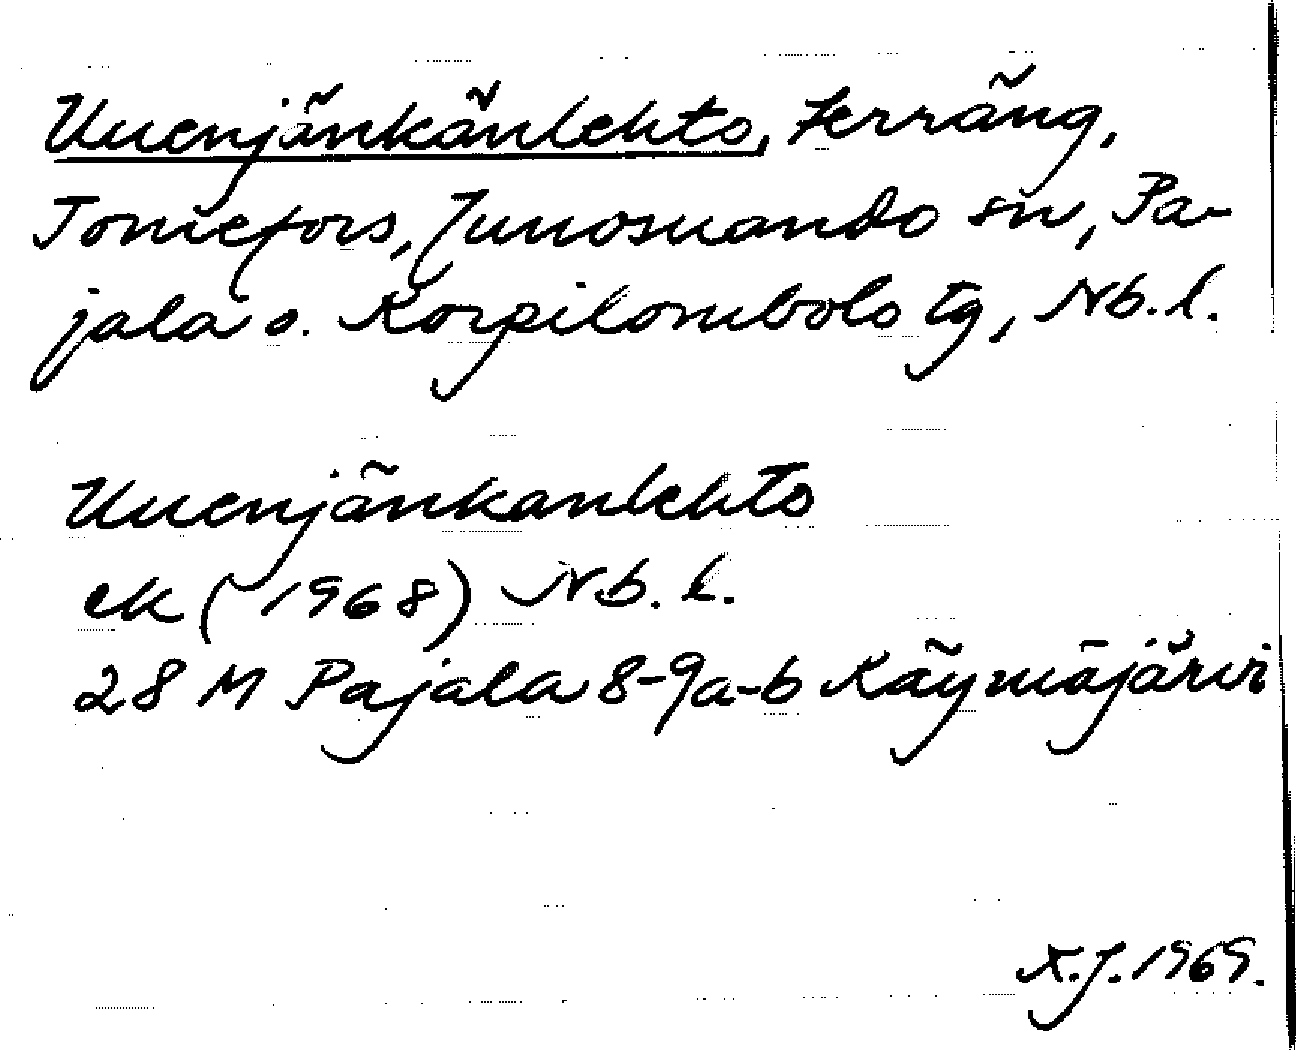 Uuenjänkänlehto, terräng,
Tornefors, Junosuando sn, Pa-
jala o. Korpilombolo tg, Nb. l.
Uuenjänkanlehto
ek (1968) Nb. l.
28 M Pajala 8-9a-b Käymäjärvi
K.J. 1969.